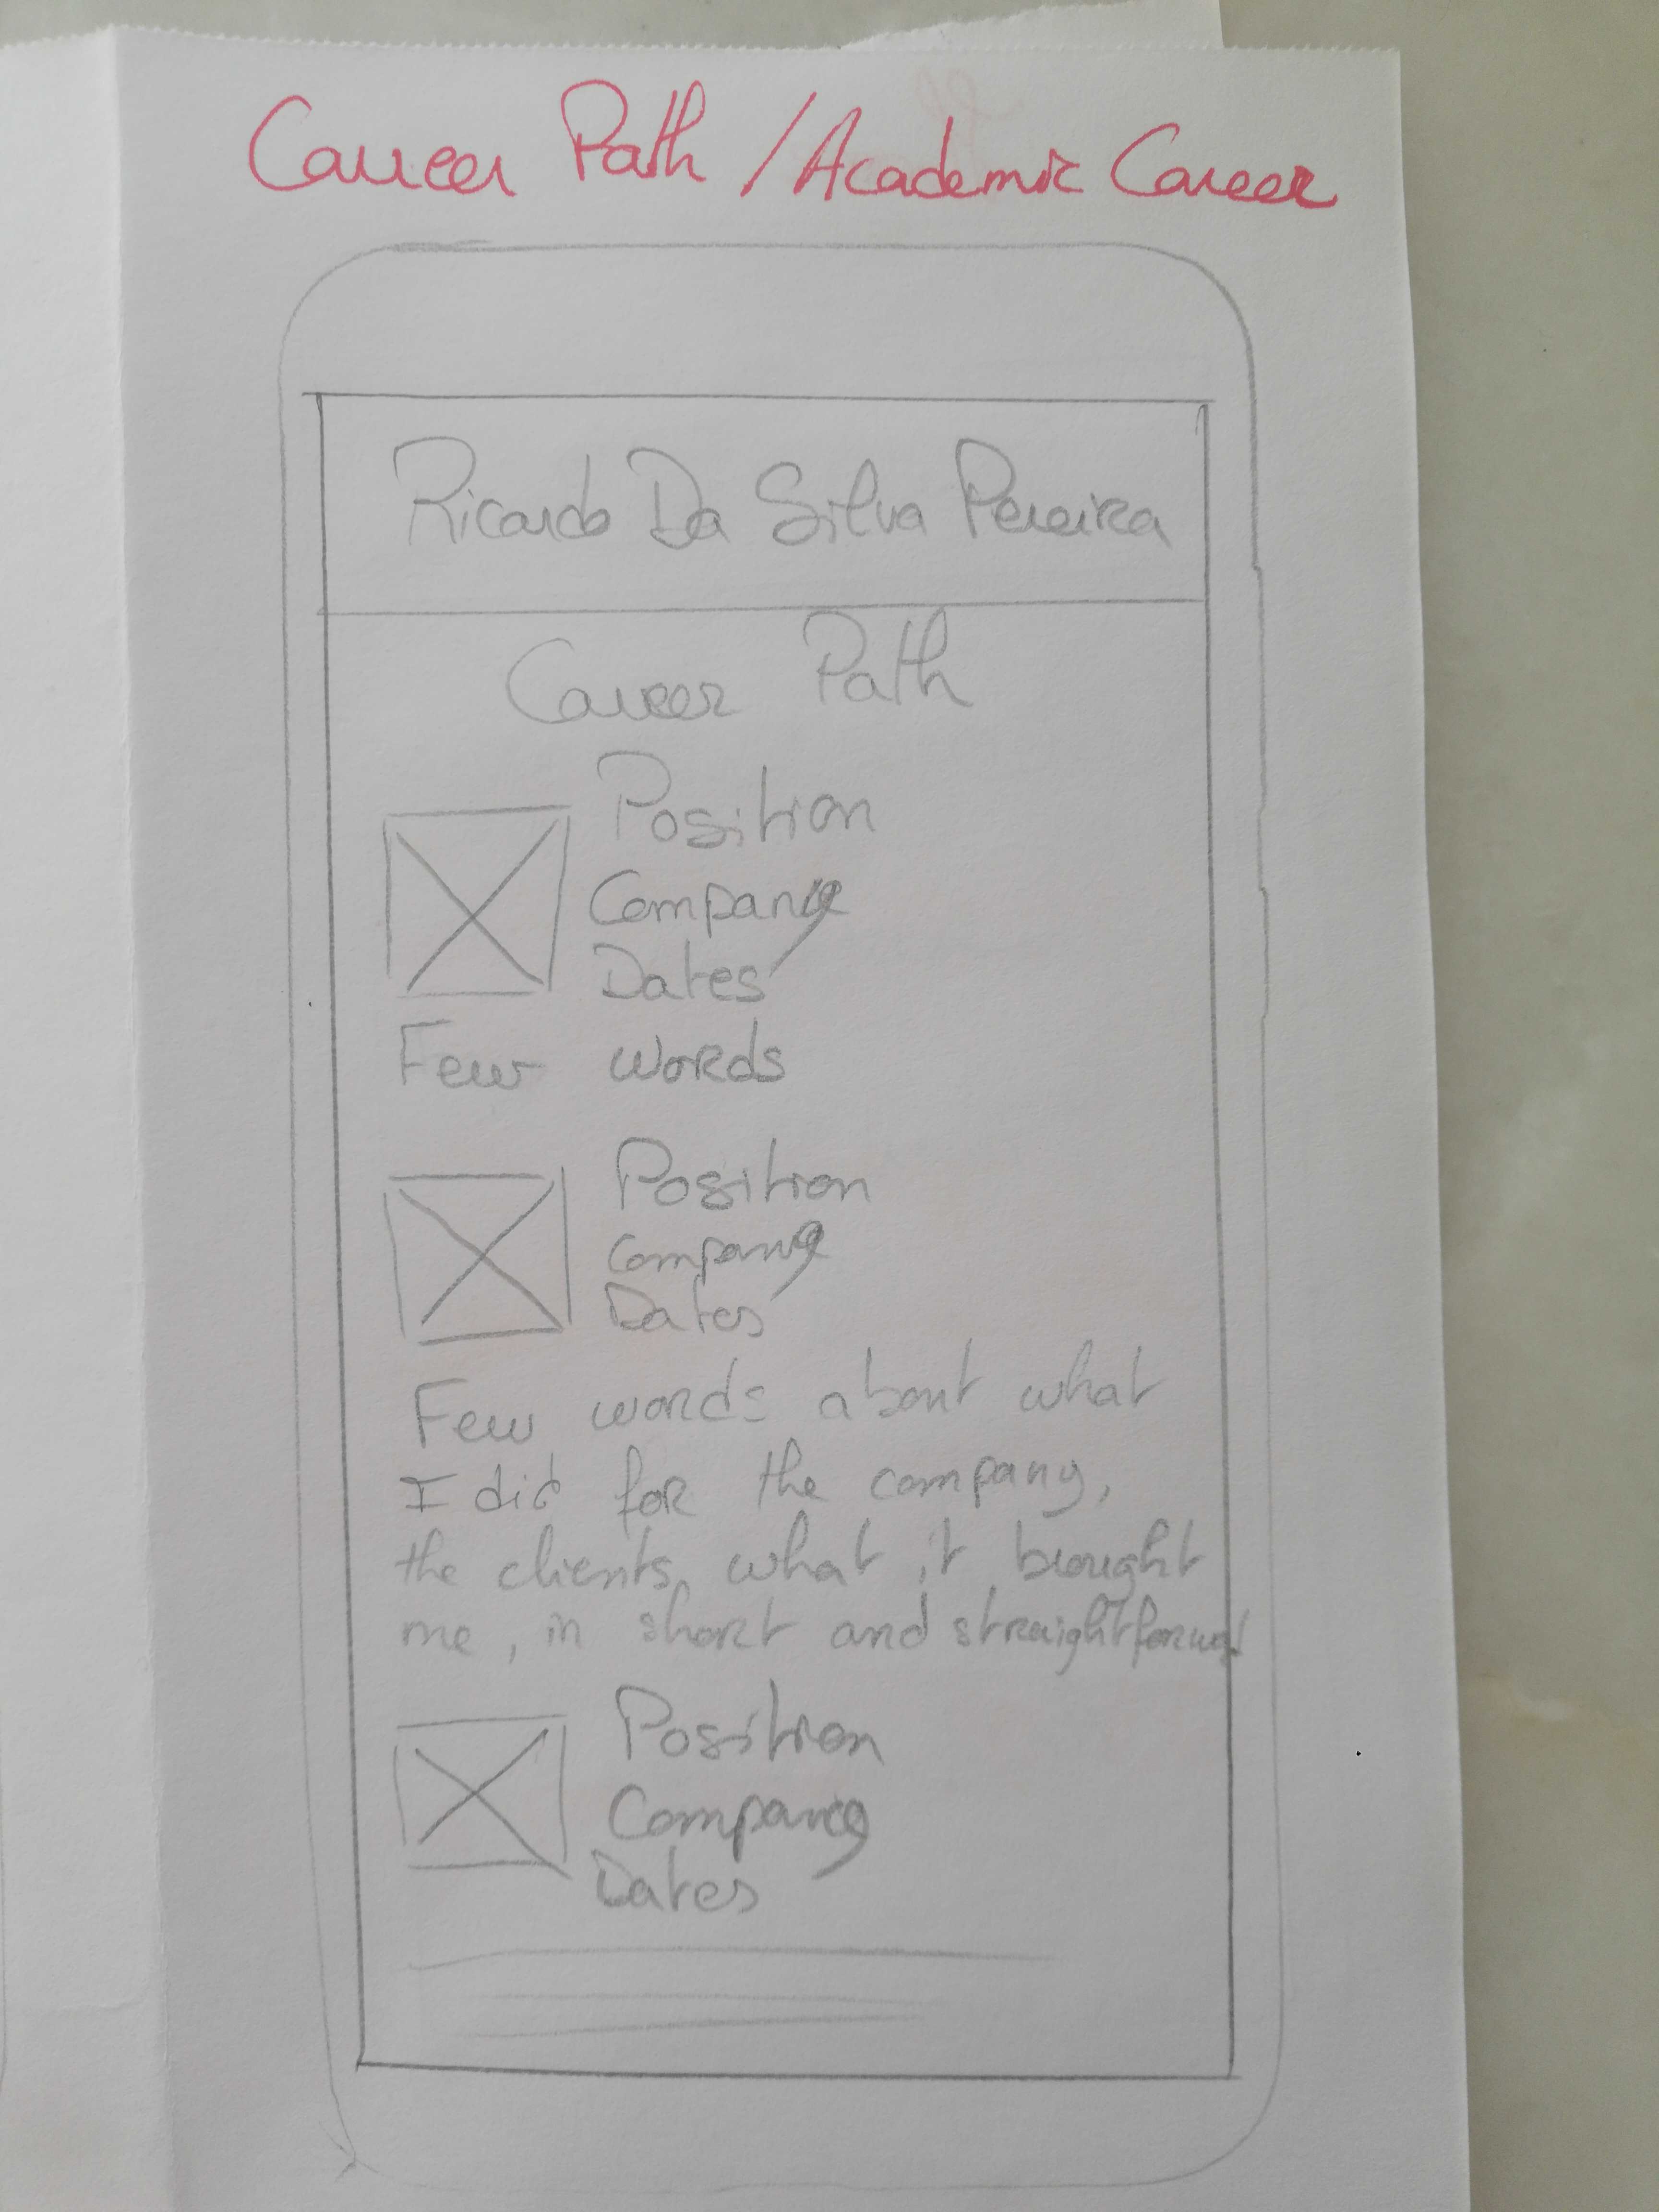 Career Path / Academic Career
Ricardo Da Silva Pereira
Career Path
Position
Company
Dates
Few words
Position
Company
Dates
Few words about what
I did for the company,
the clients, what it brought
me, in short and straightforward
Position
Company
Dates